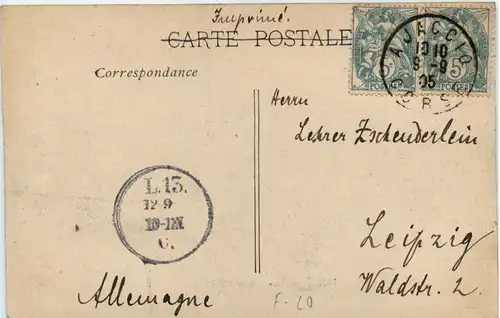 Imprimé.
CARTE POSTALE
Correspondance
AJACCIO
10 10
9 -9
05
CORSE
5
POSTES
Herrn
Lehrer Zschenderlein
Leipzig
Waldstr. 2.
L.13.
12 9
C.
Allemagne
F-20